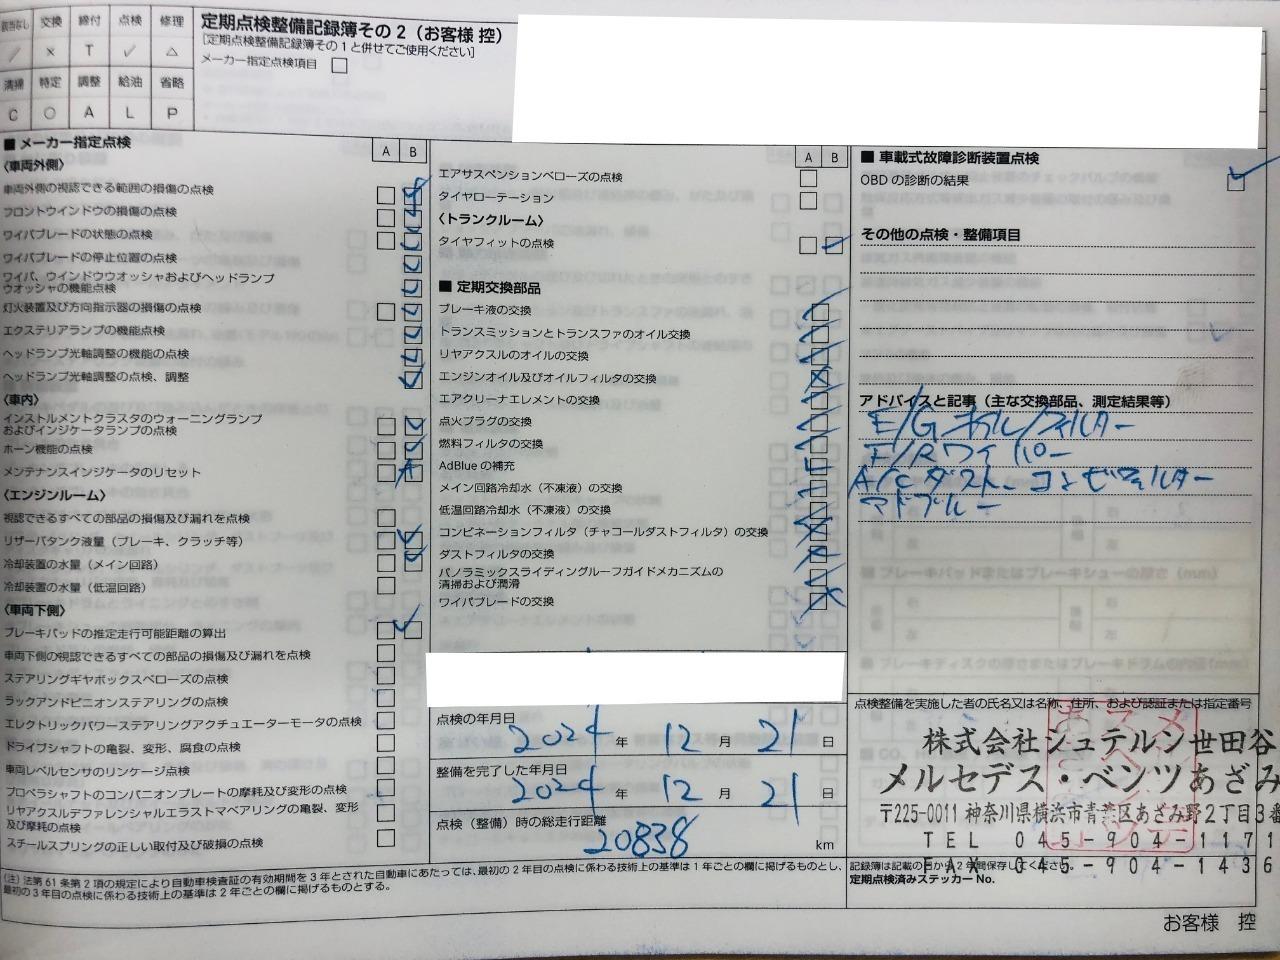 該当なし 交換 締付 点検 修理
／ × T ✓ △
清掃 特定 調整 給油 省略
C ○ A L P
定期点検整備記録簿その2（お客様 控）
［定期点検整備記録簿その1と併せてご使用ください］
メーカー指定点検項目 □
■ メーカー指定点検
A B
〈車両外側〉
車両外側の視認できる範囲の損傷の点検
フロントウインドウの損傷の点検
ワイパブレードの状態の点検
ワイパブレードの停止位置の点検
ワイパ、ウインドウウオッシャおよびヘッドランプ
ウオッシャの機能点検
灯火装置及び方向指示器の損傷の点検
エクステリアランプの機能点検
ヘッドランプ光軸調整の機能の点検
ヘッドランプ光軸調整の点検、調整
〈車内〉
インストルメントクラスタのウォーニングランプ
およびインジケータランプの点検
ホーン機能の点検
メンテナンスインジケータのリセット A
〈エンジンルーム〉
視認できるすべての部品の損傷及び漏れを点検
リザーバタンク液量（ブレーキ、クラッチ等）
冷却装置の水量（メイン回路）
冷却装置の水量（低温回路）
〈車両下側〉
ブレーキパッドの推定走行可能距離の算出
車両下側の視認できるすべての部品の損傷及び漏れを点検
ステアリングギヤボックスベローズの点検
ラックアンドピニオンステアリングの点検
エレクトリックパワーステアリングアクチュエーターモータの点検
ドライブシャフトの亀裂、変形、腐食の点検
車両レベルセンサのリンケージ点検
プロペラシャフトのコンパニオンプレートの摩耗及び変形の点検
リヤアクスルデファレンシャルエラストマベアリングの亀裂、変形
及び摩耗の点検
スチールスプリングの正しい取付及び破損の点検
A B
エアサスペンションベローズの点検
タイヤローテーション
〈トランクルーム〉
タイヤフィットの点検
■ 定期交換部品
ブレーキ液の交換
トランスミッションとトランスファのオイル交換
リヤアクスルのオイルの交換
エンジンオイル及びオイルフィルタの交換
エアクリーナエレメントの交換
点火プラグの交換
燃料フィルタの交換
AdBlueの補充
メイン回路冷却水（不凍液）の交換
低温回路冷却水（不凍液）の交換
コンビネーションフィルタ（チャコールダストフィルタ）の交換
ダストフィルタの交換
パノラミックスライディングルーフガイドメカニズムの
清掃および潤滑
ワイパブレードの交換
点検の年月日
2024 年 12 月 21 日
整備を完了した年月日
2024 年 12 月 21 日
点検（整備）時の総走行距離
20838 km
■ 車載式故障診断装置点検
OBDの診断の結果
その他の点検・整備項目
アドバイスと記事（主な交換部品、測定結果等）
E/Gオイル/フィルター
F/Rワイパー
A/Cダスト、コンビフィルター
アドブルー
点検整備を実施した者の氏名又は名称、住所、および認証または指定番号
株式会社シュテルン世田谷
メルセデス・ベンツあざみ
〒225-0011 神奈川県横浜市青葉区あざみ野2丁目3番
TEL 045-904-1171
記録簿は記載の日から2年間保存してください。
FAX 045-904-1436
定期点検済みステッカーNo.
（注）法第61条第2項の規定により自動車検査証の有効期間を3年とされた自動車にあたっては、最初の2年目の点検に係わる技術上の基準は1年ごとの欄に掲げるものとし、
最初の3年目の点検に係わる技術上の基準は2年ごとの欄に掲げるものとする。
お客様 控